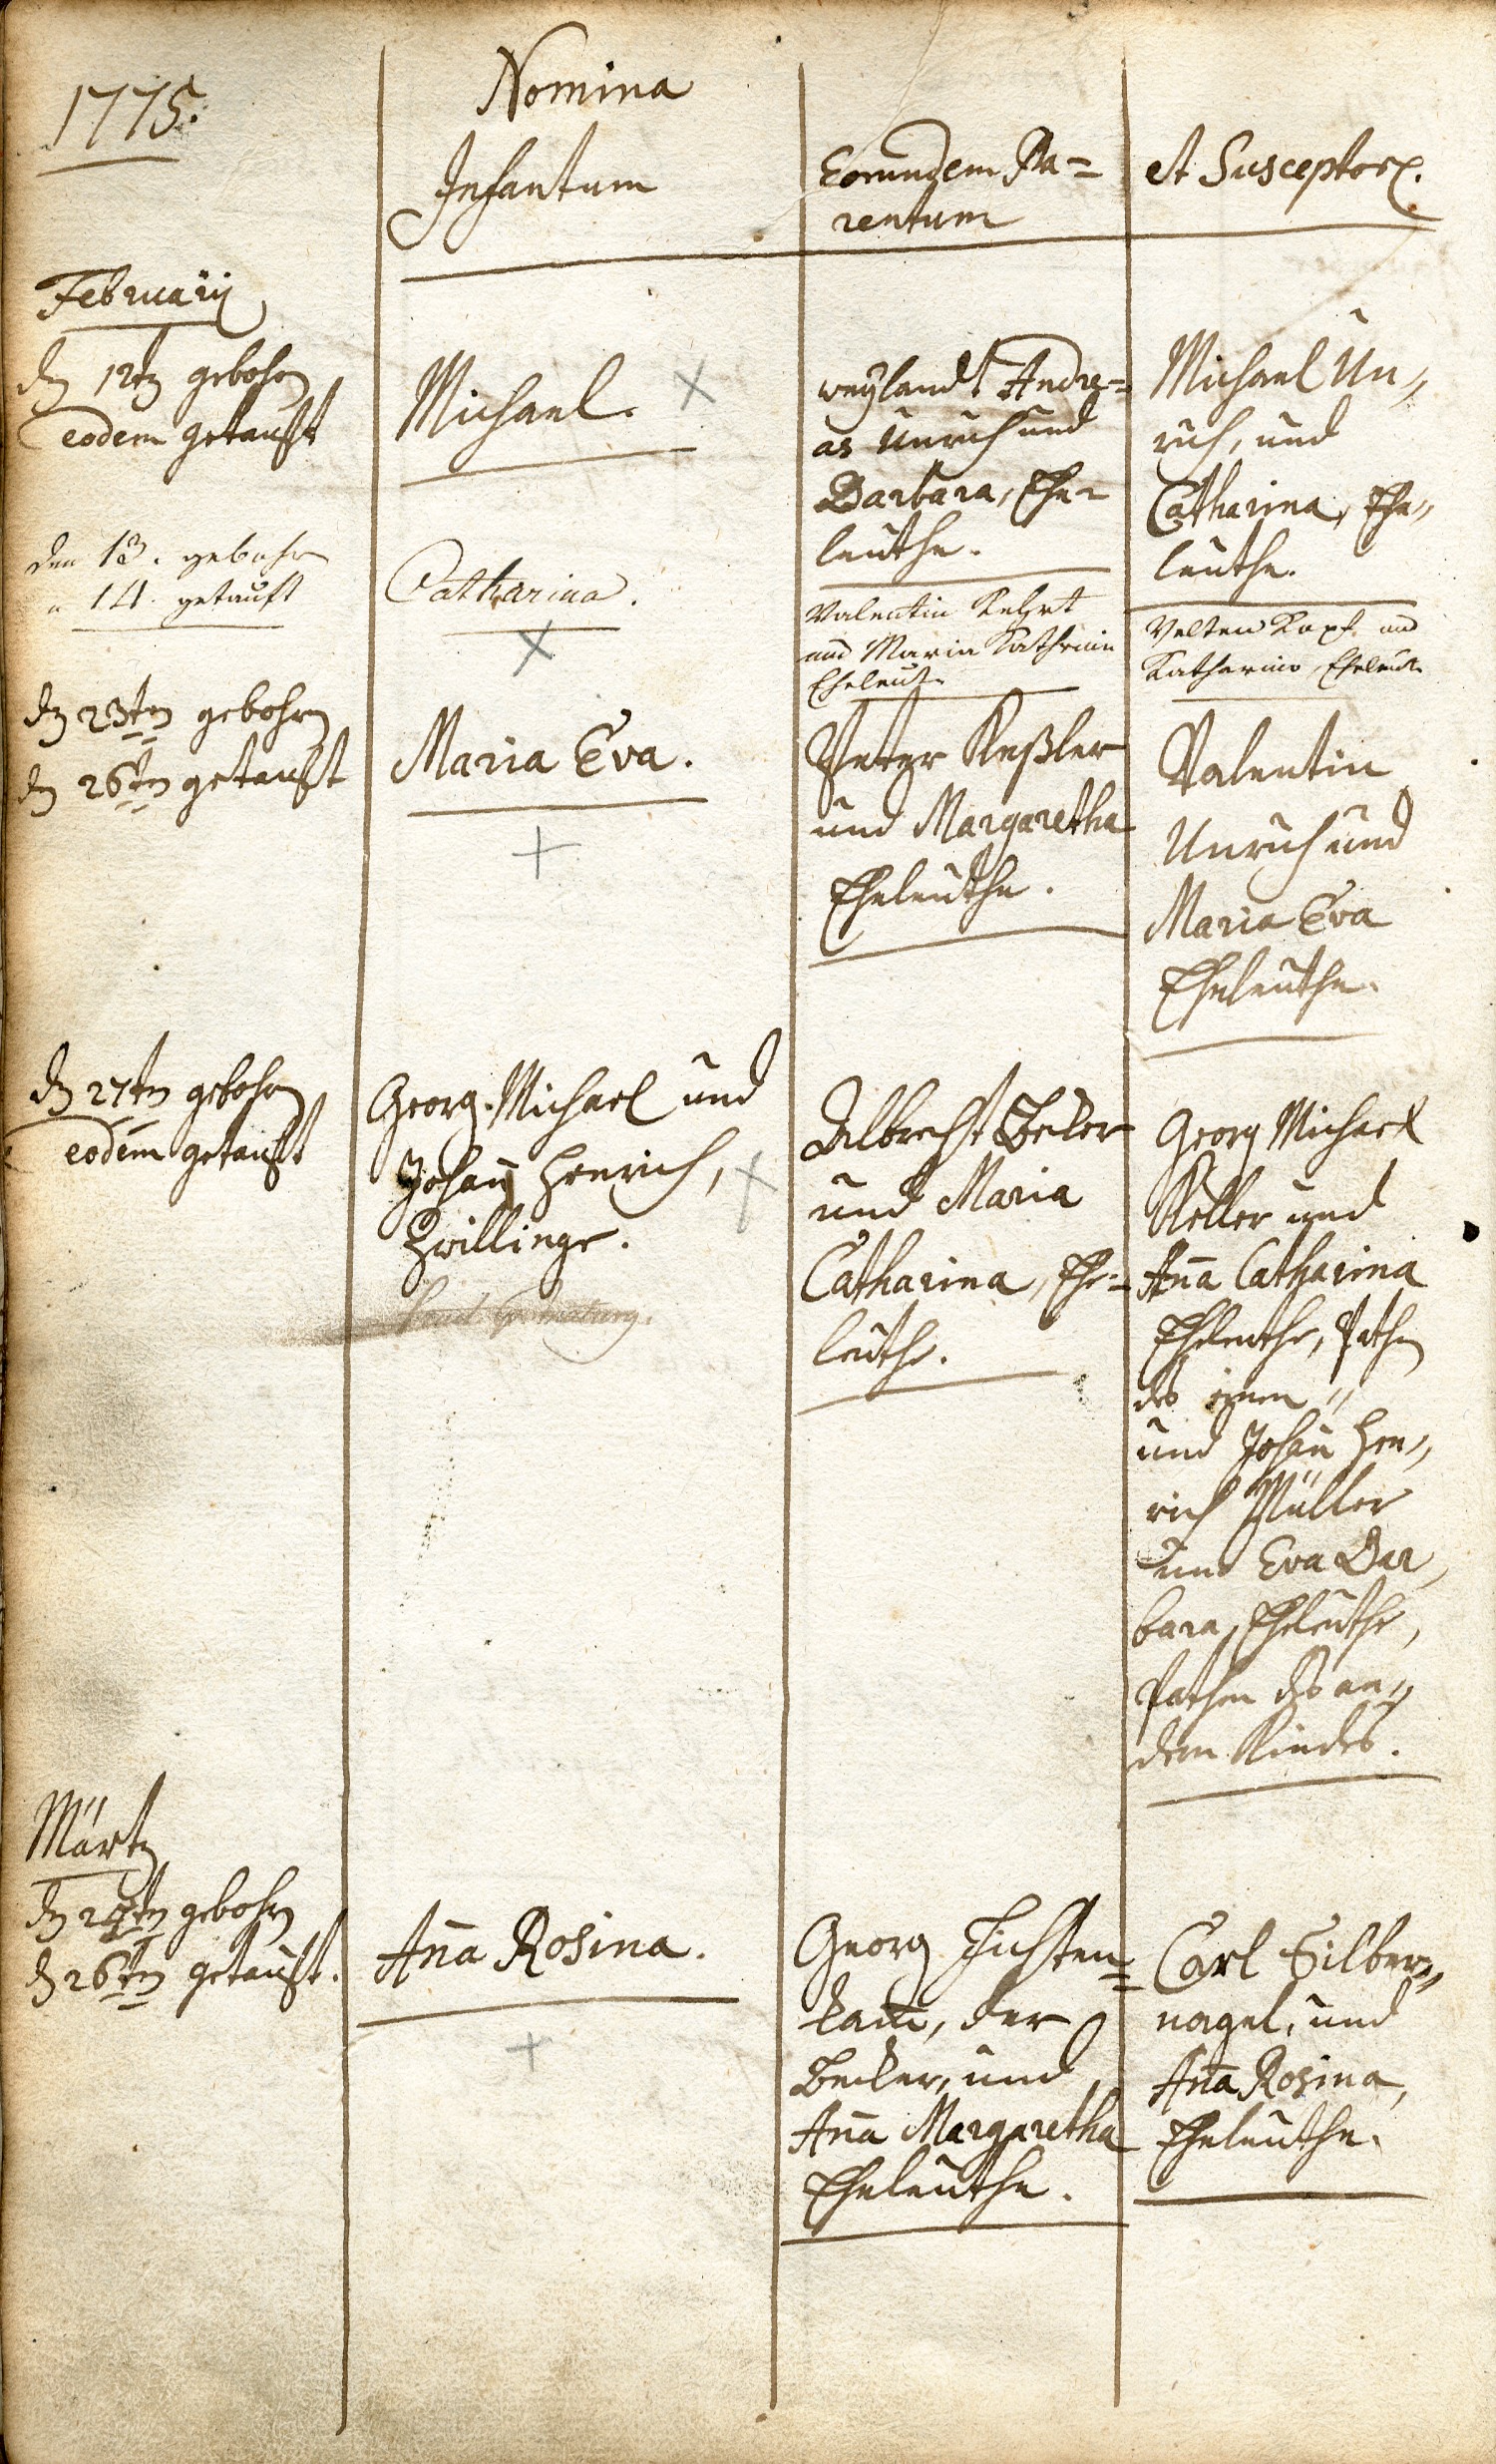 1775.
Nomina
Infantum
Eorundem Pa=
rentum
et Susceptor.
Februarij
dn 12tn gebohrn
eodem getauft
Michael.
weylandt Andre=
as Unruh und
Barbara, Ehe-
leuthe.
Michael Un„
ruh, und
Catharina, Ehe„
leuthe.
den 13. gebohr
" 14. getauft
Catharina.
Valentin Kehrt
und Maria Kathrein
Eheleut
Velten Kopf und
Katharina, Eheleut
dn 23tn gebohrn
dn 26tn getauft
Maria Eva.
Peter Keßler
und Margaretha
Eheleuthe.
Valentin
Unruh und
Maria Eva
Eheleuthe.
dn 27tn gebohrn
eodem getauft
Georg Michael und
Johan̄ Henrich,
Zwillinge.
Albrecht
und Maria
Catharina, Ehe=
leuthe.
Georg Michael
Keller und
An̄a Catharina
Eheleuthe, Pathen
des einen„
und Johan̄ Hen„
rich Müller
und Eva Bar„
bara, Eheleuthe,
Pathen des an„
dern Kindes.
Märtz
dn gebohrn
dn 26tn getauft.
An̄a Rosina.
Georg Fichten=
kam̄, der
Becker, und
An̄a Margaretha
Eheleuthe.
Carl Silber„
nagel, und
An̄a Rosina,
Eheleuthe.